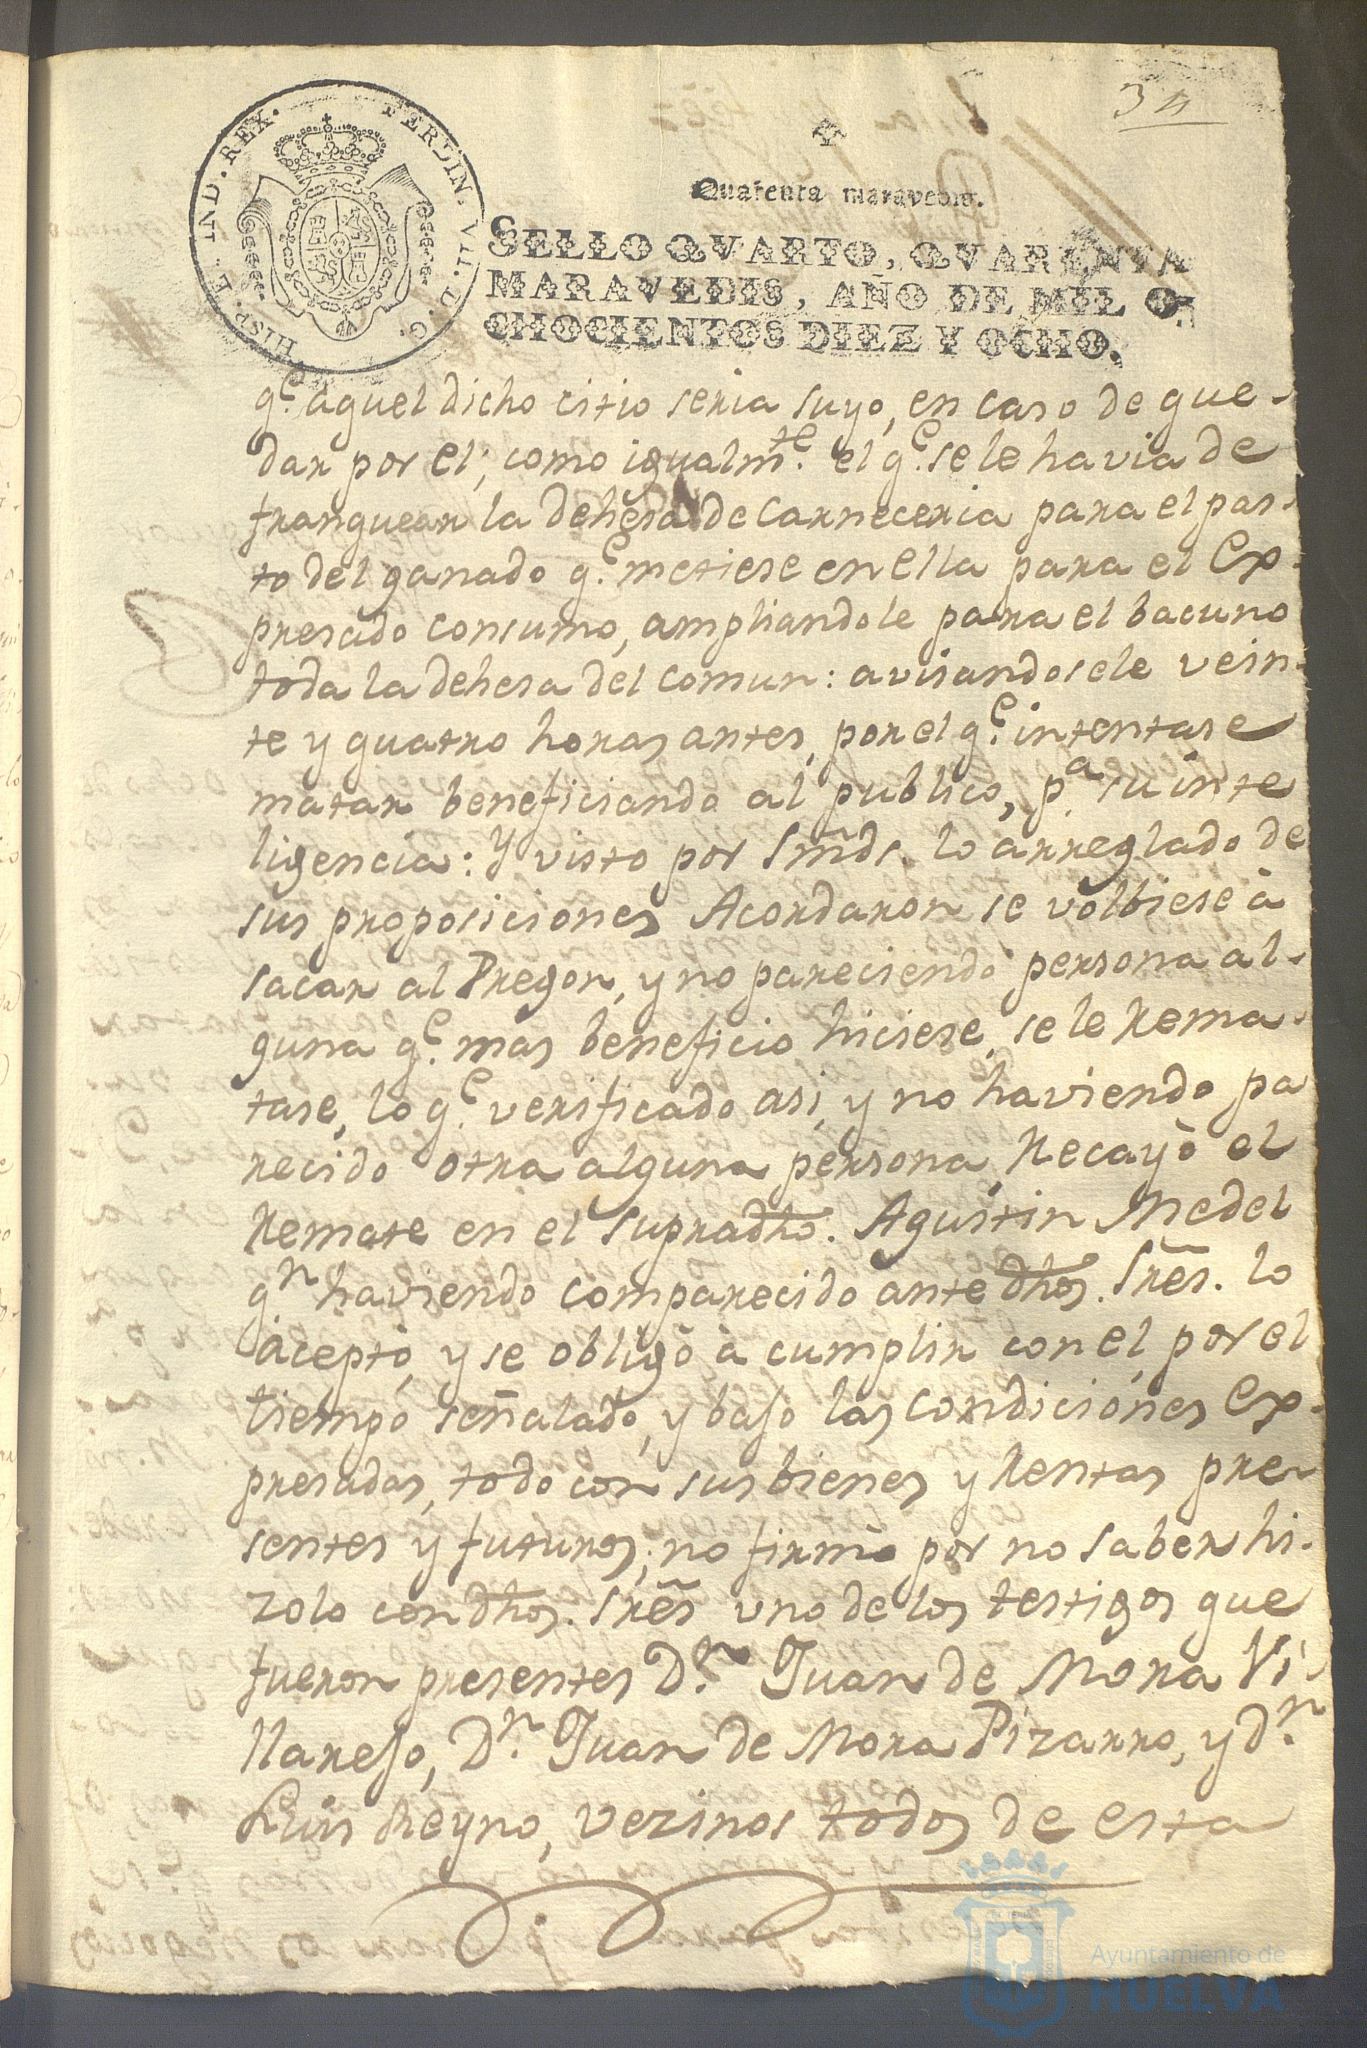 34
Quarenta maravedis.
SELLO QVARTO, QVARENTA
MARAVEDIS, AÑO DE MIL O-
CHOCIENTOS DIEZ Y OCHO.
HISP. E. IND. REX. FERDIN. VII. D. G.
qe. aquel dicho citio seria suyo, en caso de que-
dar por el; como igualmte. el qe. se le havia de
franquear la dehesa de Carneceria para el pas-
to del ganado qe. metiese en ella para el Ex-
presado consumo, ampliandole para el bacuno
toda la dehesa del comun: avisandosele vein-
te y quatro horas antes, por el qe. intentase
matar beneficiando al publico, pa. su inte
ligencia: Y visto por Smds. lo arreglado de
sus proposiciones Acordaron se volbiese à
sacar al Pregon, y no pareciendo persona al-
guna qe. mas beneficio hiciese, se le Rema-
tase, lo qe. verificado asi, y no haviendo pa
recido otra alguna persona, Recayò el
Remate en el supradho. Agustin Medel
qn. haviendo comparecido ante dhos. Sres. lo
aceptò, y se obligò à cumplir con el, por el
tiempo señalado, y bajo las condiciones Ex-
presadas, todo con sus bienes y Rentas pre-
sentes y futuros; no firmò por no saber hi-
zolo con dhos. Sres. uno de los testigos que
fueron presentes Dn. Juan de Mora Vi-
llarejo, Dn. Juan de Mora Pizarro, y dn.
Luis Reyno, vezinos todos de esta
Ayuntamiento de
HUELVA